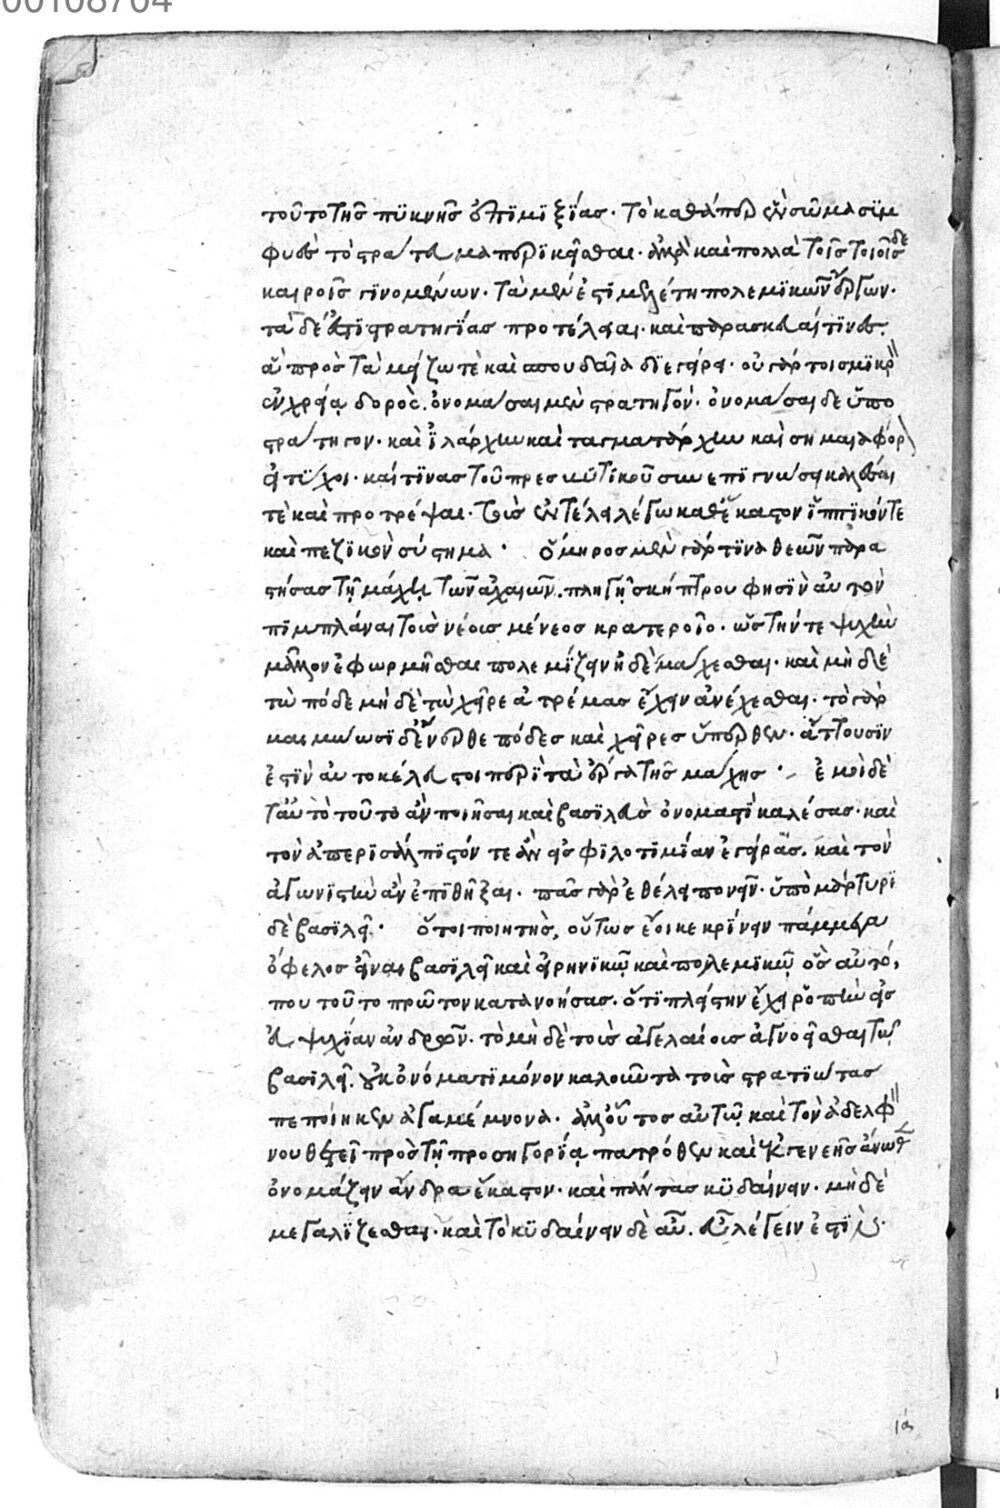 00108704
τοῦτο τῆς πυκνῆς ἐπιμιξίας. τὸ καθάπερ ἓν σῶμα συμ
φυὲς τὸ στράτευμα περικεῖσθαι. ἀλλὰ καὶ πολλὰ τοῖς τοιοῖσδε
καιροῖς γινομένων. τὰ μὲν ἐστὶ μελέτη πολεμικῶν ἔργων.
τὰ δὲ ἐπὶ στρατηγίας προτέλεια. καὶ παρασκευαί τινες.
ἃ πρὸς τὰ μείζω τὲ καὶ σπουδαῖα διεγείρει. οὐ γάρ τοι σμικρ
ἐν χρείᾳ δορὸς. ὀνομάσαι μὲν στρατηγόν. ὀνομάσαι δὲ ὑπο
στράτηγον. καὶ ἰλάρχην καὶ ταγματάρχην καὶ σημαιαφόρ
εἰ τύχοι. καί τινας τοῦ πρεσβυτικοῦ συνεπιγνῶναι κελεῦσαί
τὲ καὶ προτρέψαι. τοῖς ἐν τέλει λέγω καθέκαστον ἱππικόν τε
καὶ πεζικὸν σύστημα. ὅμηρος μὲν γάρ τινα θεῶν παρα
στήσας τῇ μάχῃ τῶν ἀχαιῶν. πληγῇ σκήπτρου φησὶν αὐτὸν
πιμπλάναι τοὺς νέοις μένεος κρατεροῖο. ὡς τήν τε ψυχὴν
μᾶλλον ἐφωρμῆσθαι πολεμίζειν ἠδὲ μάχεσθαι. καὶ μὴ διὲ
τὼ πόδε μὴ δὲ τὼ χεῖρε ἀτρέμας ἔχειν ἀνέχεσθαι. τὸ γὰρ
μαιμώωσι δ' ἔνερθε πόδες καὶ χεῖρες ὕπερθεν. ἄττουσιν
ἐστὶν αὐτοκέλευστοι περὶ τὰ ἔργα τῆς μάχης. ἐμοὶ δὲ
ταὐτὸ τοῦτο ἂν ποιῆσαι καὶ βασιλεὺς ὀνομαστὶ καλέσας. καὶ
τὸν ἀπερισάλπιστόν τε ἂν εἰς φιλοτιμίαν ἐγεῖραι. καὶ τὸν
ἀγωνιστὴν ἂν ἐπιθῆξαι. πᾶς γὰρ ἐθέλει πονεῖν. ὑπὸ μάρτυρι
δὲ βασιλεῖ. ὅ τοι ποιητὴς, οὕτως ἔοικε κρίνειν πάμμεγα
ὄφελος εἶναι βασιλεῖ καὶ εἰρηνικῷ καὶ πολεμικῷ ὃς αὐτό,
που τοῦτο πρῶτον κατανοήσας. ὅτι πλείστην ἔχει ῥοπὴν εἰς
εὐψυχίαν ἀνδρῶν. τὸ μὴ δὲ τοὺς ἀγελαίοις ἀγνοεῖσθαι τῷ
βασιλεῖ. οὐκ ὀνόματι μόνον καλοῦντα τοὺς στρατιώτας
πεποίηκεν ἀγαμέμνονα. ἀλλ' οὗτος αὐτῷ καὶ τὸν ἀδελφ
νουθετεῖ πρὸς τῇ προσηγορίᾳ πατρόθεν καὶ ἐκ γενεῆς ἄνωθ
ὀνομάζειν ἄνδρα ἕκαστον. καὶ πάντας κυδαίνειν. μὴ δὲ
μεγαλίζεσθαι. καὶ τὸ κυδαίνειν δὲ αὖ. εὖ λέγειν ἐστὶ